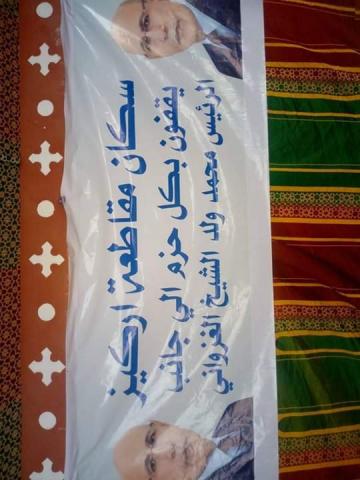 سكان مقاطعة اركيز
يقفون بكل حزم الي جانب
الرئيس محمد ولد الشيخ الغزواني